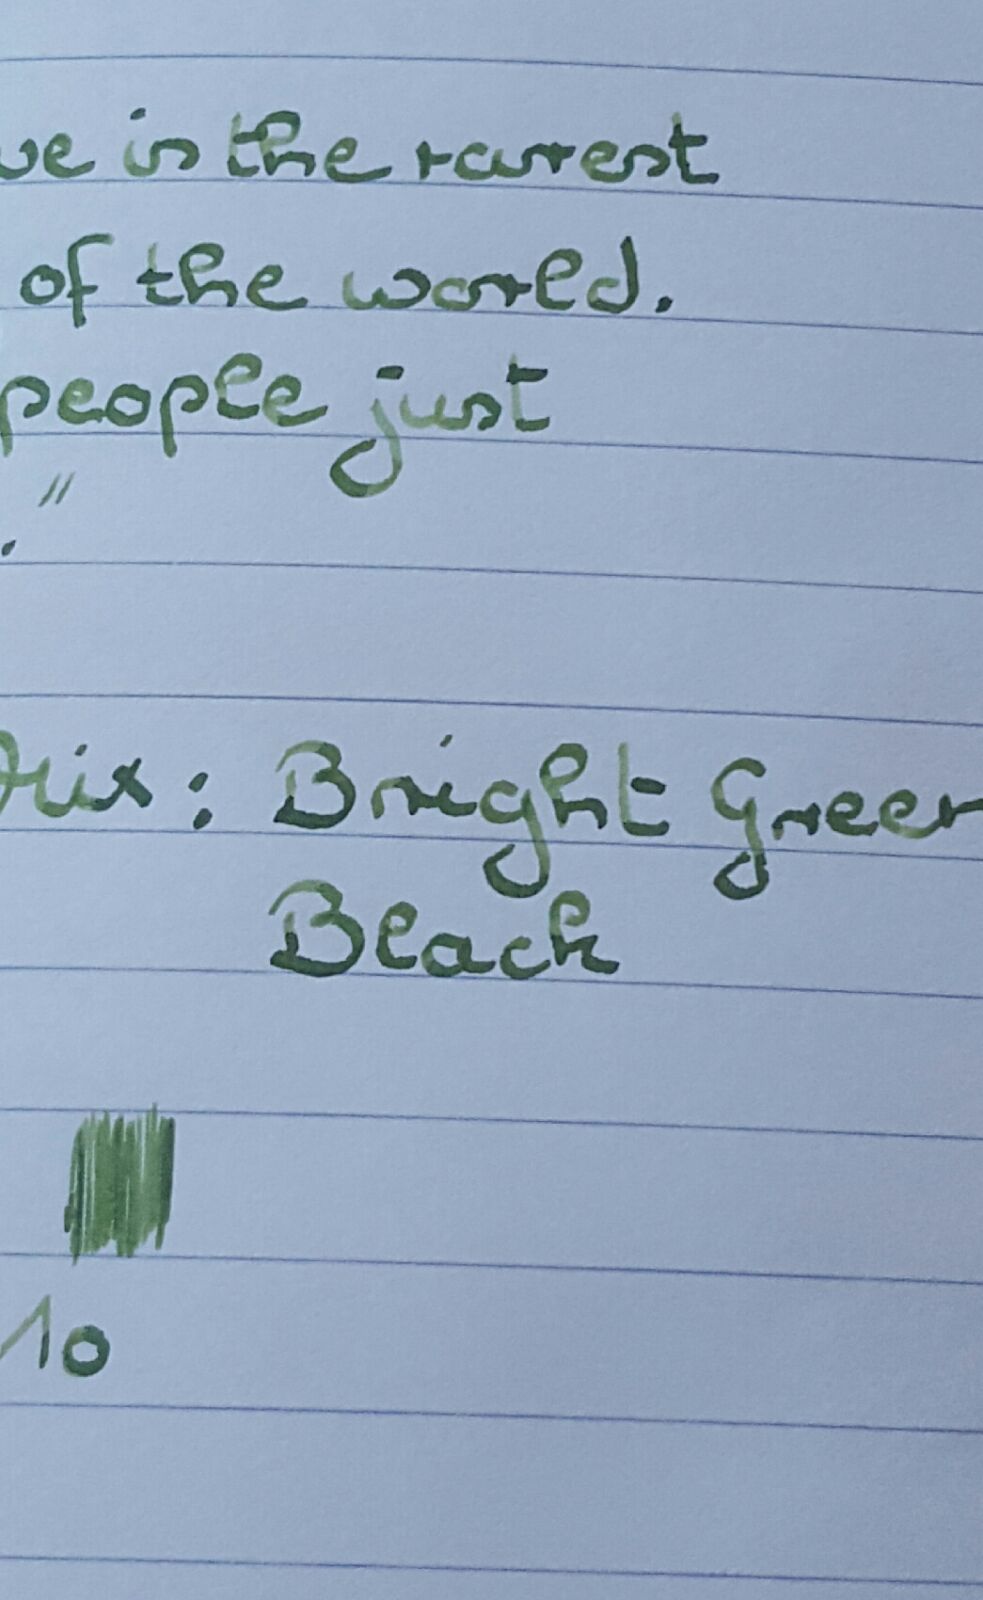 ve is the rarest
of the world.
people just
."
Mix: Bright Green
Black
10